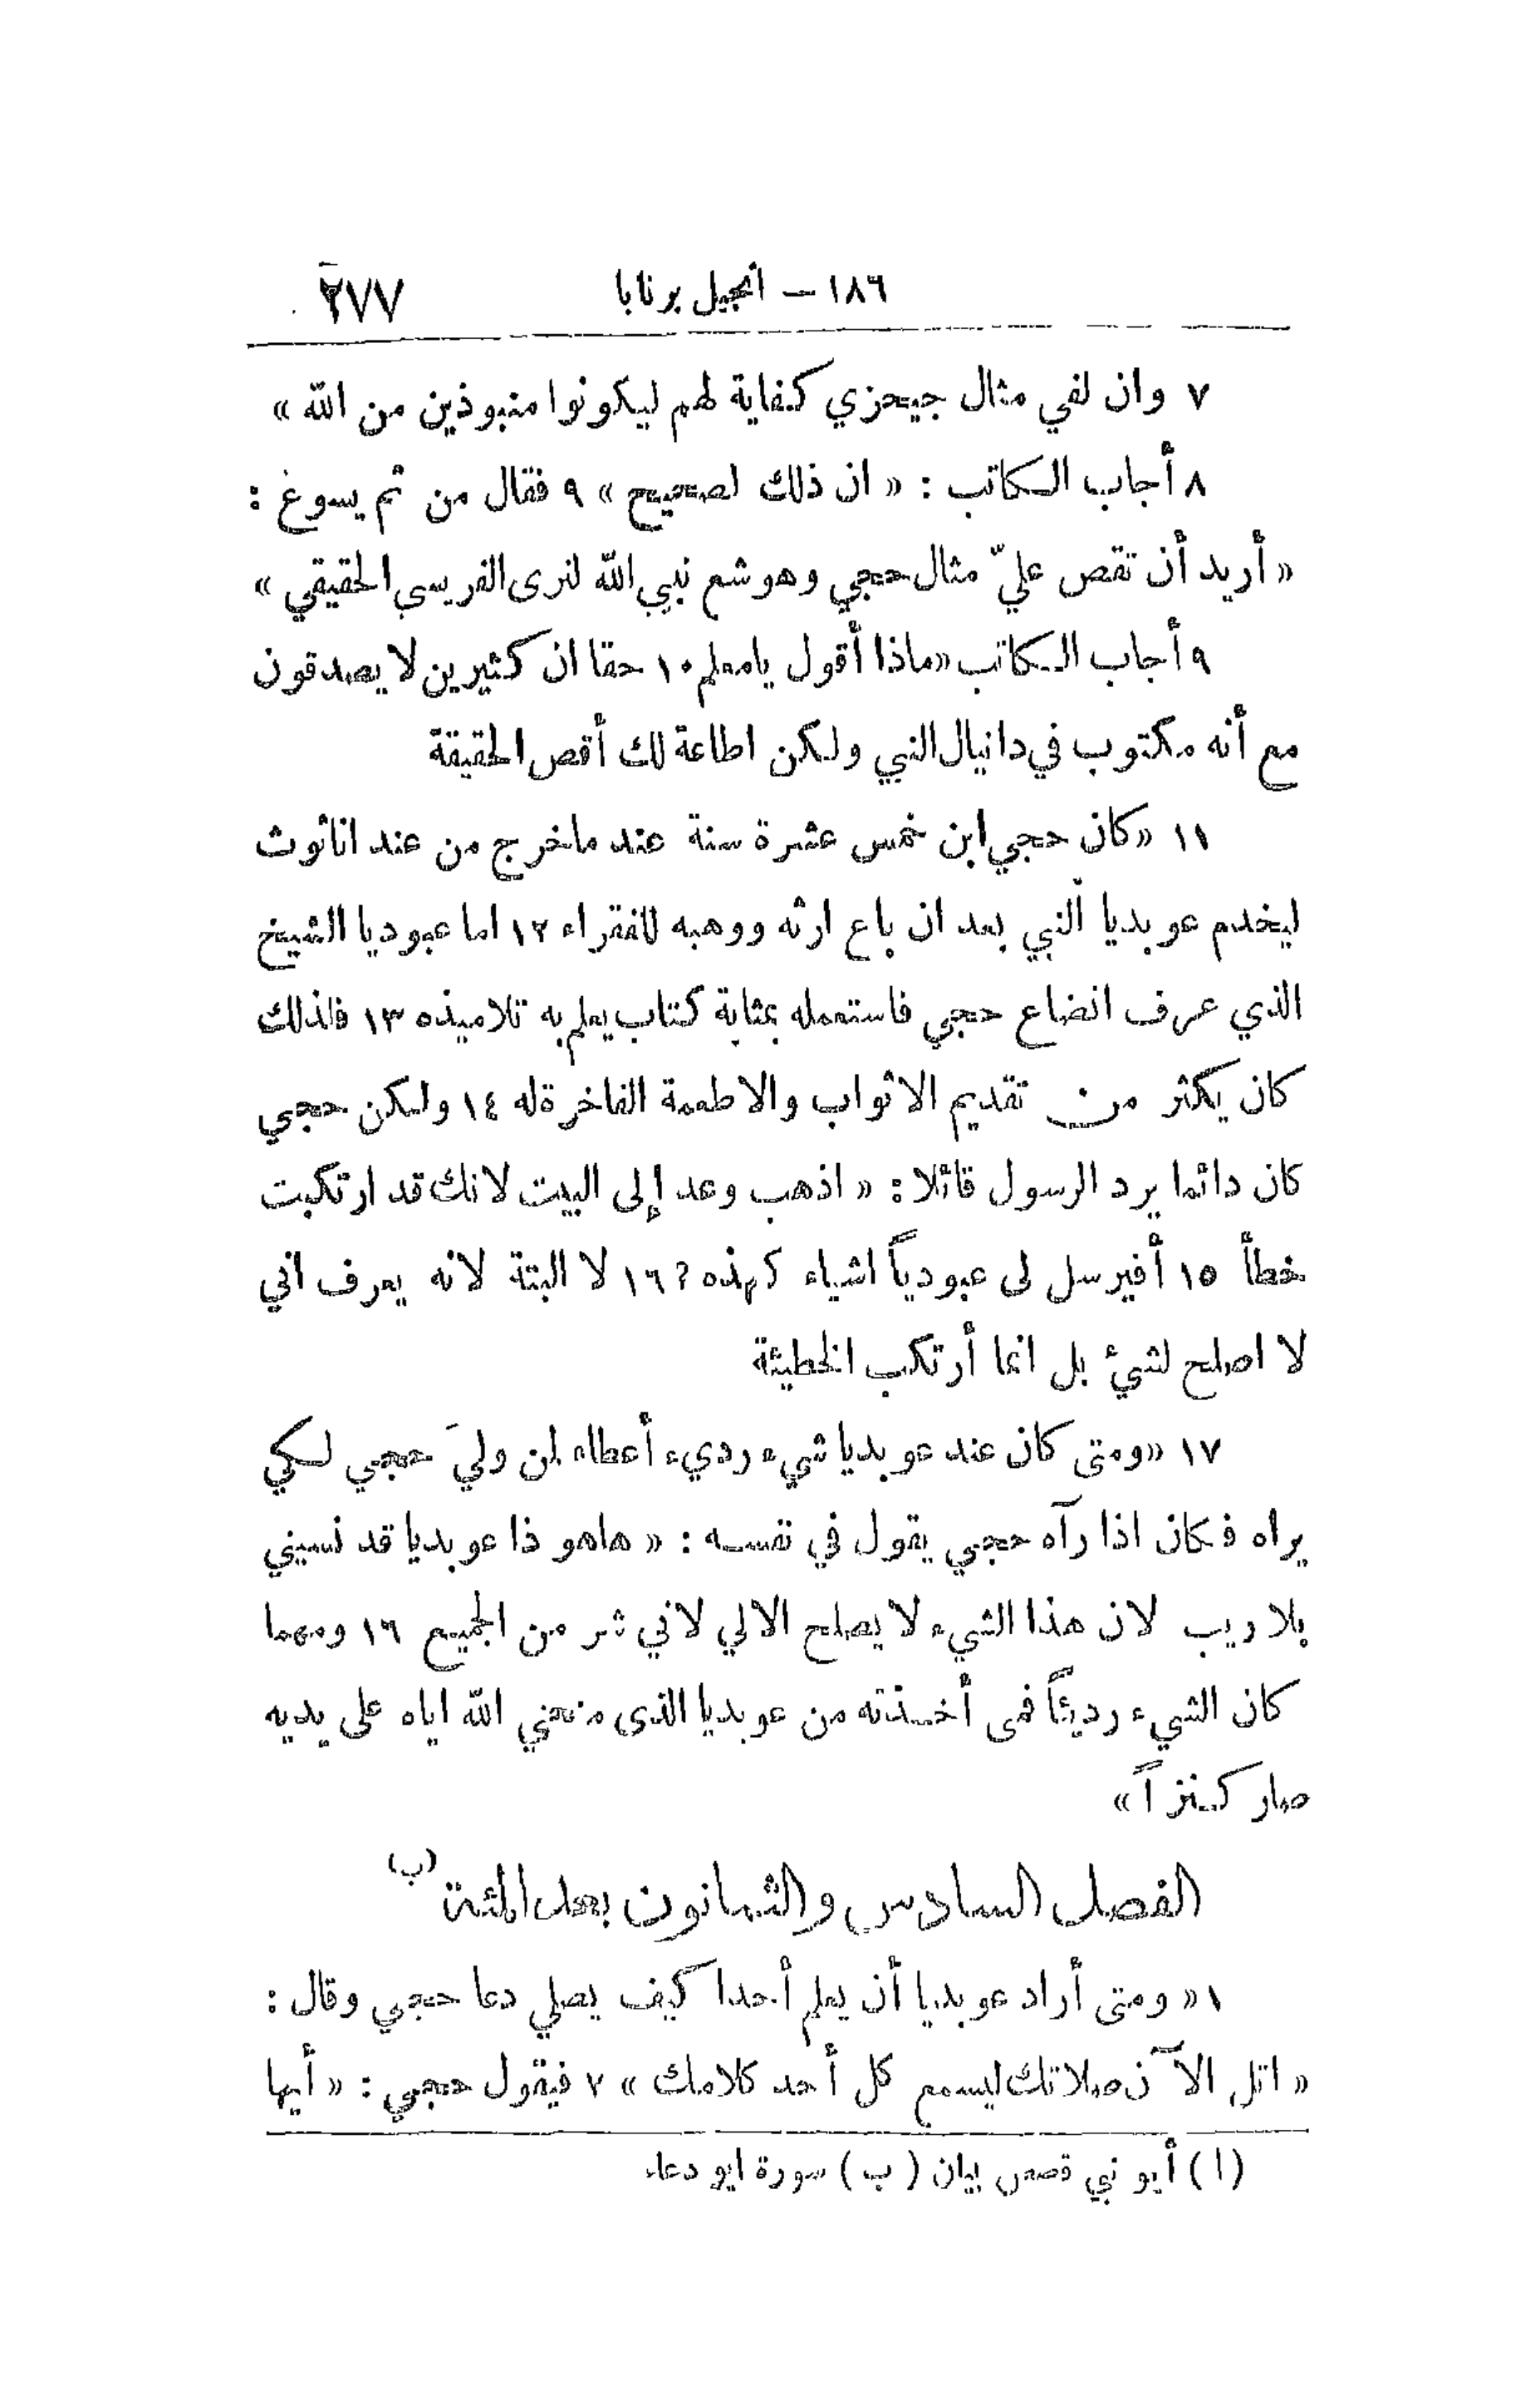 ١٨٦ — انجيل برنابا ٢٧٧
٧ وان لفي مثال جيحزي كفاية لهم ليكونوا منبوذين من الله »
٨ أجاب الكاتب : « ان ذلك لصحيح » ٩ فقال من ثم يسوع :
« أريد أن تقص عليّ مثال حجي وهوشع نبي الله لنرى الفريسي الحقيقي »
٩ أجاب الكاتب «ماذا أقول يامعلم ١٠ حقا ان كثيرين لا يصدقون
مع أنه مكتوب في دانيال النبي ولكن اطاعة لك أقص الحقيقة
١١ «كان حجي ابن خمس عشرة سنة عند ماخرج من عند اناثوث
ليخدم عوبديا النبي بعد ان باع ارثه ووهبه للفقراء ١٢ اما عبوديا الشيخ
الذي عرف اتضاع حجي فاستعمله بمثابة كتاب يعلم به تلاميذه ١٣ فلذلك
كان يكثر من تقديم الاثواب والاطعمة الفاخرة له ١٤ ولكن حجي
كان دائما يرد الرسول قائلا : « اذهب وعد إلى البيت لانك قد ارتكبت
خطأ ١٥ أفيرسل لى عبودياً اشياء كهذه ؟ ١٦ لا البتة لانه يعرف اني
لا اصلح لشيء بل انما أرتكب الخطيئة
١٧ «ومتى كان عند عوبديا شيء رديء أعطاه لمن وليَ حجي لكي
يراه فكان اذا رآه حجي يقول في نفسه : « هاهو ذا عوبديا قد نسيني
بلا ريب لان هذا الشيء لا يصلح الالي لاني شر من الجميع ١٦ ومهما
كان الشيء رديئاً فمى أخذته من عوبديا الذى منحني الله اياه على يديه
صار كنزاً »
الفصل السادس والثمانون بعد المئة (ب)
١ « ومتى أراد عوبديا أن يعلم أحدا كيف يصلي دعا حجي وقال :
« اتل الآن صلاتك ليسمع كل أحد كلامك » ٧ فيقول حجي : « أيها
(ا) أيو نبي قصص بيان (ب) سورة ايو دعاء